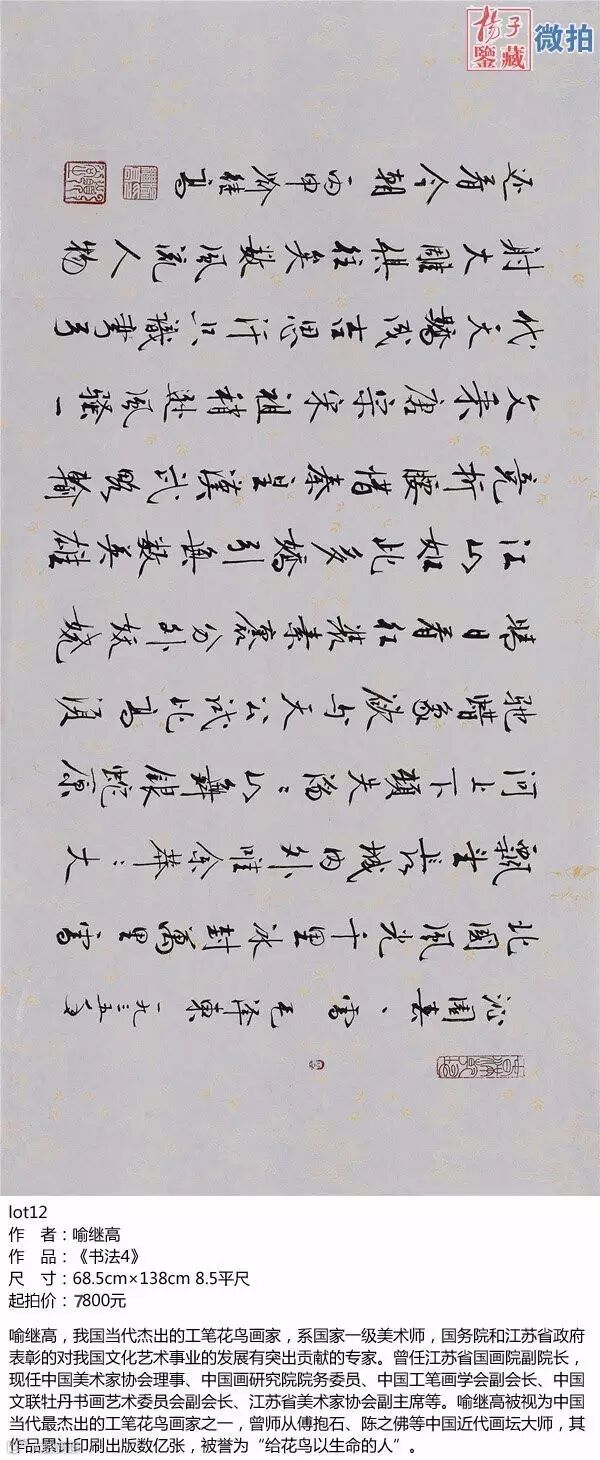 楊子
鑒藏
微拍
沁園春、雪 毛澤東 一九三五年
北國風光千里冰封萬里雪
飄望長城内外唯余莽〻大
河上下頓失滔〻山舞銀蛇原
馳蠟象欲与天公試比高須
晴日看红装素裹分外妖娆
江山如此多嬌引無數英雄
竞折腰惜秦皇漢武略輸
文采唐宗宋祖稍逊風騷一
代天驕成吉思汗只識彎弓
射大雕俱往矣數風流人物
还看今朝 丙申喻继高
lot12
作 者：喻继高
作 品：《书法4》
尺 寸：68.5cm×138cm 8.5平尺
起拍价：7800元
喻继高，我国当代杰出的工笔花鸟画家，系国家一级美术师，国务院和江苏省政府
表彰的对我国文化艺术事业的发展有突出贡献的专家。曾任江苏省国画院副院长，
现任中国美术家协会理事、中国画研究院院务委员、中国工笔画学会副会长、中国
文联牡丹书画艺术委员会副会长、江苏省美术家协会副主席等。喻继高被视为中国
当代最杰出的工笔花鸟画家之一，曾师从傅抱石、陈之佛等中国近代画坛大师，其
作品累计印刷出版数亿张，被誉为“给花鸟以生命的人”。